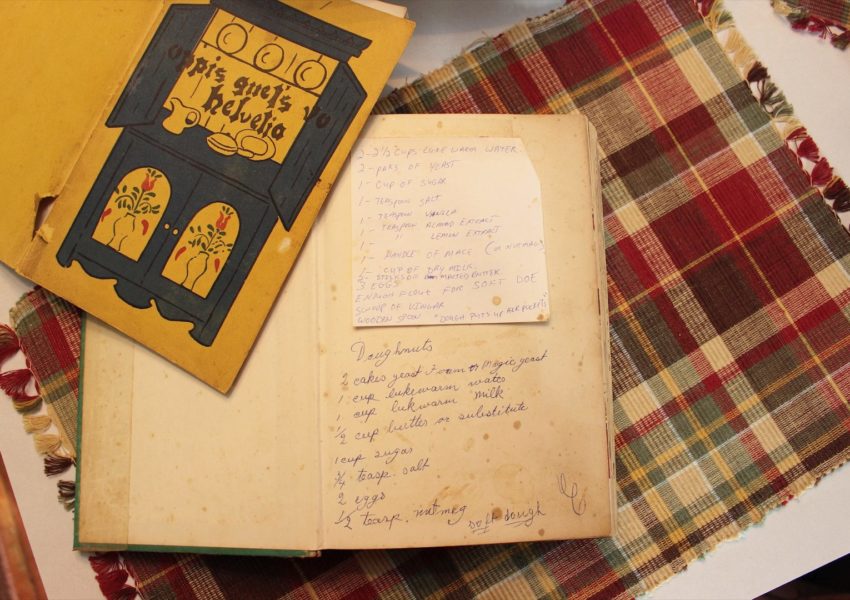 oppis guet's vo
helvetia
2-2½ CUPS LUKE WARM WATER
2-PAKS OF YEAST
1-CUP OF SUGAR
1-TEASPOON SALT
1-TEASPOON VANILLA
1-TEASPOON ALMOND EXTRACT
1- " LEMON EXTRACT
1- OF MACE (OR NUTMEG)
1-CUP OF DRY MILK
2-STICKS OF MELTED BUTTER
3 EGGS
ENOUGH FLOUR FOR SOFT DOE
SCOOP OF VINGAR
WOODEN SPOON "DOUGH PUTS UP AIR POCKETS"
Doughnuts
2 cakes yeast Foam or Magic yeast
1 cup lukewarm water
1 cup lukwarm milk
½ cup butter or substitute
1 cup sugar
¾ teasp. salt
2 eggs
½ teasp. nutmeg
soft dough